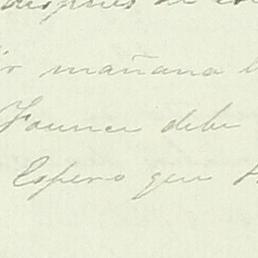 después de
mañana
debe
Espero que